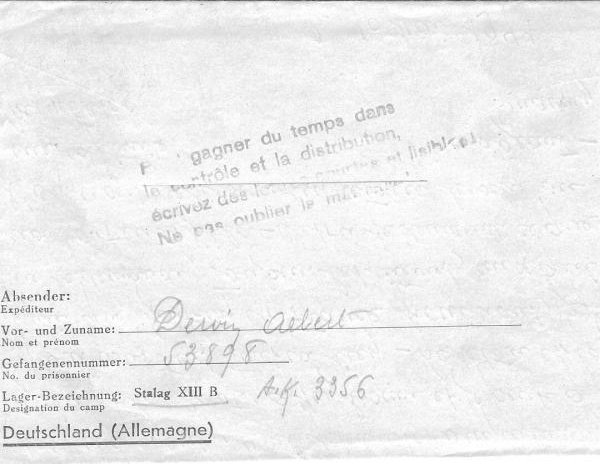 gagner du temps dans
le contrôle et la distribution,
écrivez des lettres courtes et lisibles!
Ne pas oublier le
Absender:
Expéditeur
Vor- und Zuname: Albert
Nom et prénom
Gefangenennummer: 53898
No. du prisonnier
Lager-Bezeichnung: Stalag XIII B A.K. 3356
Designation du camp
Deutschland (Allemagne)